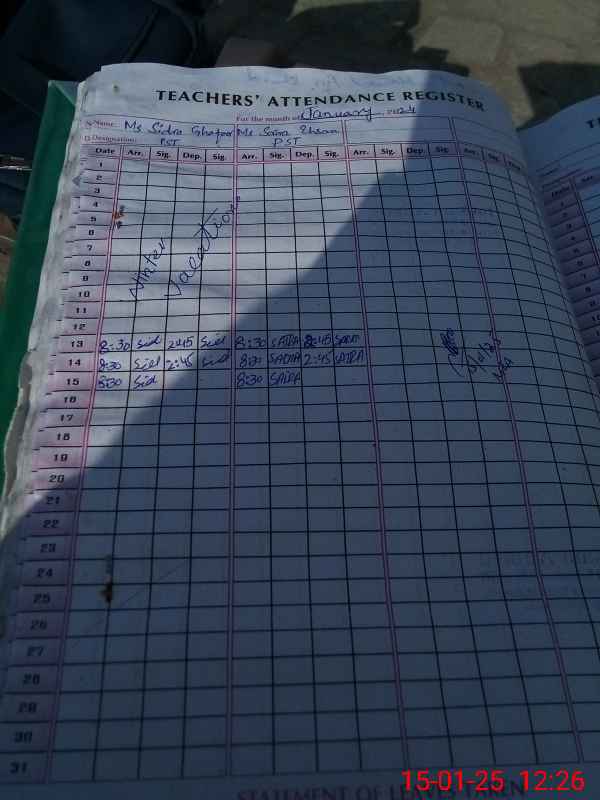 TEACHERS' ATTENDANCE REGISTER
Name. Ms Sidra Ghafoor Ms Saira Ehsan For the month of January 2024
Designation: PST PST
Date Arr. Sig. Dep. Sig. Arr. Sig. Dep. Sig. Arr. Sig. Dep. Sig. Arr. Sig.
1
2
3
4
5
6
7
8
9
10
11
12
Winter Vacation
13 8:30 Sid 2:45 Sid 8:30 SAIRA 2:45 SAIRA
14 8:30 Sid 2:45 Sid 8:30 SAIRA 2:45 SAIRA
15 8:30 Sid 8:30 SAIRA
16
17
18
19
20
21
22
23
24
25
26
27
28
29
30
31
STATEMENT OF LEAVES TAKEN
Date Arr.
1
15-01-25 12:26